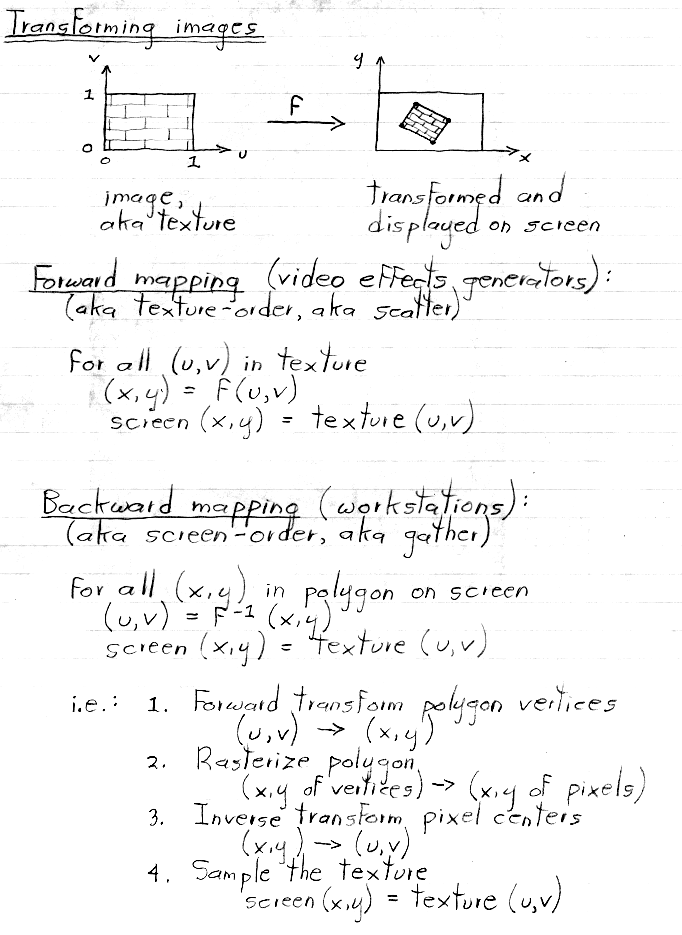 Transforming images
v
y
1
F
0
0
1
u
x
image,
aka texture
transformed and
displayed on screen
Forward mapping (video effects generators):
(aka texture-order, aka scatter)
for all (u,v) in texture
(x,y) = F(u,v)
screen (x,y) = texture (u,v)
Backward mapping (workstations):
(aka screen-order, aka gather)
for all (x,y) in polygon on screen
(u,v) = F⁻¹ (x,y)
screen (x,y) = texture (u,v)
i.e.: 1. Forward transform polygon vertices
(u,v) → (x,y)
2. Rasterize polygon
(x,y of vertices) → (x,y of pixels)
3. Inverse transform pixel centers
(x,y) → (u,v)
4. Sample the texture
screen (x,y) = texture (u,v)